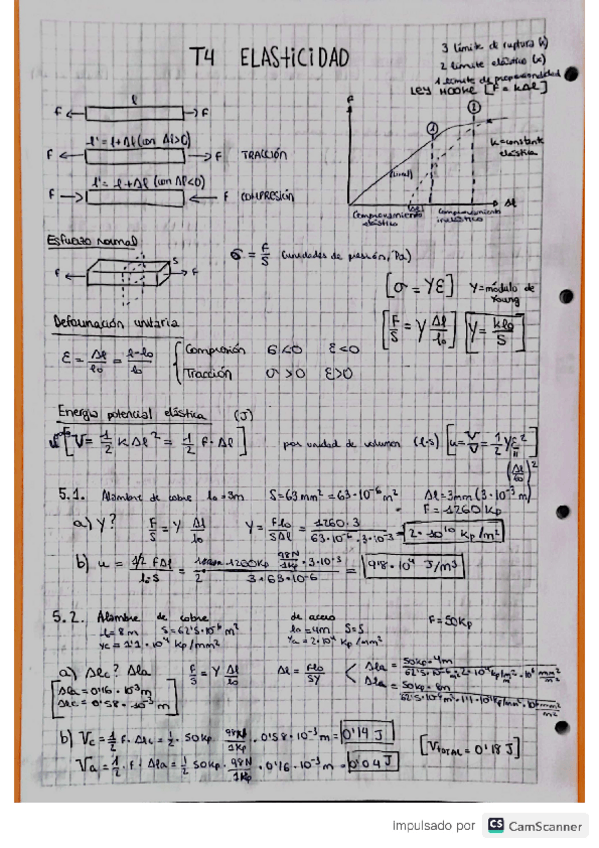 T4 ELASTICIDAD
3 límite de ruptura (k)
2 límite elástico (k)
1 límite de proporcionalidad
LEY HOOKE [F = kΔl]
l
F F
l' = l+Δl (con Δl>0)
F F TRACCIÓN
l' = l+Δl (con Δl<0)
F F COMPRESIÓN
F
1
2
(lineal)
K=constante elástica
Δl
Comportamiento elástico
Comportamiento inelástico
Esfuerzo normal
F S F
σ = F/S (unidades de presión, Pa)
[σ = Yε] Y=módulo de Young
[F/S = Y Δl/l₀] [Y = kl₀/S]
Deformación unitaria
ε = Δl/l₀ = l-l₀/l₀
Compresión σ<0 ε<0
Tracción σ>0 ε>0
Energía potencial elástica (J)
[V = 1/2 kΔl² = 1/2 F·Δl] por unidad de volumen (l·S) [u = V/V = 1/2 Yε²]
(Δl/l₀)²
5.1. Alambre de cobre l₀=3m S=63mm²=63·10⁻⁶m² Δl=3mm (3·10⁻³m)
F=1260kp
a) Y? F/S = Y Δl/l₀ Y = Fl₀/SΔl = 1260·3/63·10⁻⁶·3·10⁻³ = 2·10¹⁰ kp/m²
b) u = 1/2 FΔl/l·S = 1260kp 9'8N/1kp · 3·10⁻³ / 3·63·10⁻⁶ = 9'8·10⁴ J/m³
5.2. Alambre de cobre de acero F=50kp
l=8m S=62'5·10⁻⁶m² l₀=4m S=S
Yc=1'1·10⁴ kp/mm² Ya=2·10⁴ kp/mm²
a) Δlc? Δla F/S = Y Δl/l₀ Δl = Fl₀/SY
Δla = 50kp·4m / 62'5·10⁻⁶m²·2·10⁴kp/mm²·10⁶ mm²/m²
Δla = 50kp·8m / 62'5·10⁻⁶m²·1'1·10⁴kp/mm²·10⁶ mm²/m²
[Δla = 0'16·10⁻³m
Δlc = 0'58·10⁻³m]
b) Vc = 1/2 F·Δlc = 1/2·50kp 9'8N/1kp · 0'58·10⁻³m = 0'14 J
Va = 1/2·F·Δla = 1/2 50kp·9'8N/1kp · 0'16·10⁻³m = 0'04 J
[VTOTAL = 0'18 J]
Impulsado por CS CamScanner